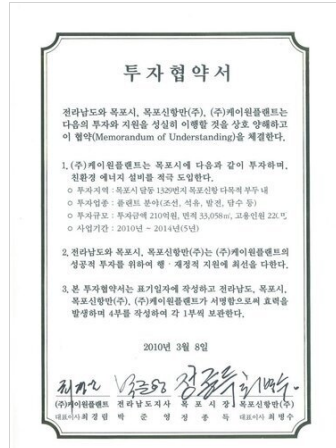 투자협약서
전라남도와 목포시, 목포신항만(주), (주)케이원플랜트는
다음의 투자와 지원을 성실히 이행할 것을 상호 양해하고
이 협약(Memorandum of Understanding)을 체결한다.
1. (주)케이원플랜트는 목포시에 다음과 같이 투자하며,
친환경 에너지 설비를 적극 도입한다.
○ 투자지역 : 목포시 달동 1329번지 목포신항 다목적 부두 내
○ 투자업종 : 플랜트 분야(조선, 석유, 발전, 담수 등)
○ 투자규모 : 투자금액 210억원, 면적 33,058㎡, 고용인원 220명
○ 사업기간 : 2010년 ~ 2014년(5년)
2. 전라남도와 목포시, 목포신항만(주)는 (주)케이원플랜트의
성공적 투자를 위하여 행 · 재정적 지원에 최선을 다한다.
3. 본 투자협약서는 표기일자에 작성하고 전라남도, 목포시,
목포신항만(주), (주)케이원플랜트가 서명함으로써 효력을
발생하며 4부를 작성하여 각 1부씩 보관한다.
2010년 3월 8일
(주)케이원플랜트 전라남도지사 목포시장 목포신항만(주)
대표이사 최경림 박준영 정종득 대표이사 최병수